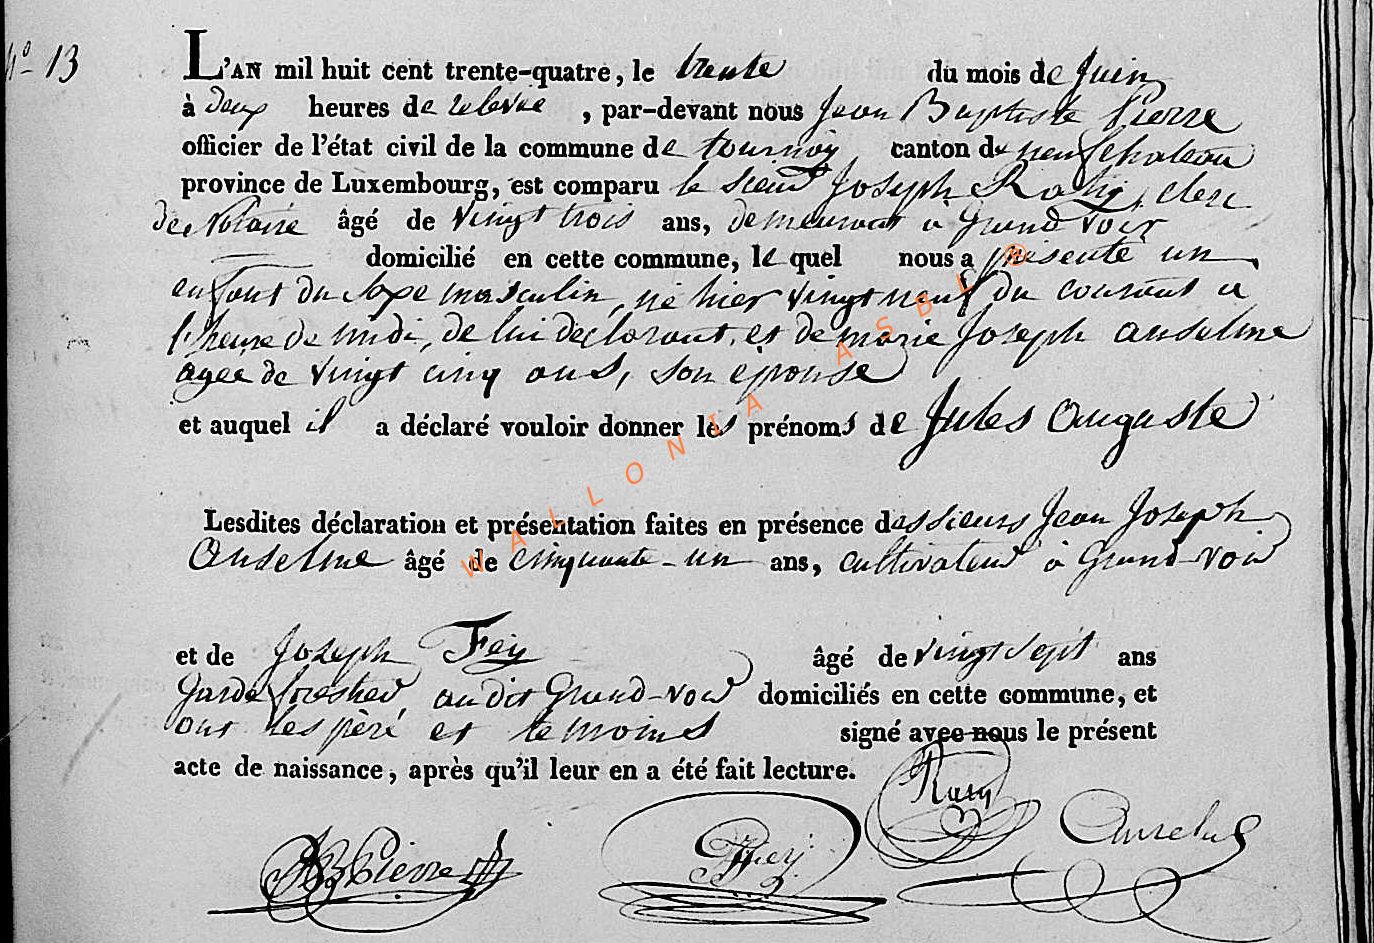 N° 13
L'AN mil huit cent trente-quatre, le trente du mois de Juin
à deux heures de relevée, par-devant nous Jean Baptiste Pierre
officier de l'état civil de la commune de tournay canton de neufchateau
province de Luxembourg, est comparu le sieur Joseph clerc
de Notaire âgé de vingt trois ans, demeurant a Grand voir
domicilié en cette commune, le quel nous a présenté un
enfant du sexe masculin, né hier vingt neuf du courant a
l'heure de midi, de lui declarant, et de marie Joseph anselme
agee de vingt cinq ans, son épouse
et auquel il a déclaré vouloir donner les prénoms de Jules Auguste
Lesdites déclaration et présentation faites en présence des sieurs Jean Joseph
Anselme âgé de cinquante-un ans, cultivateur à Grand-voir
et de Joseph Fey âgé de vingt sept ans
Garde forestier, au dit Grand-voir domiciliés en cette commune, et
ont les père et temoins signé avec nous le présent
acte de naissance, après qu'il leur en a été fait lecture.
JB Pierre Anselme
WALLONIA ASBL ®